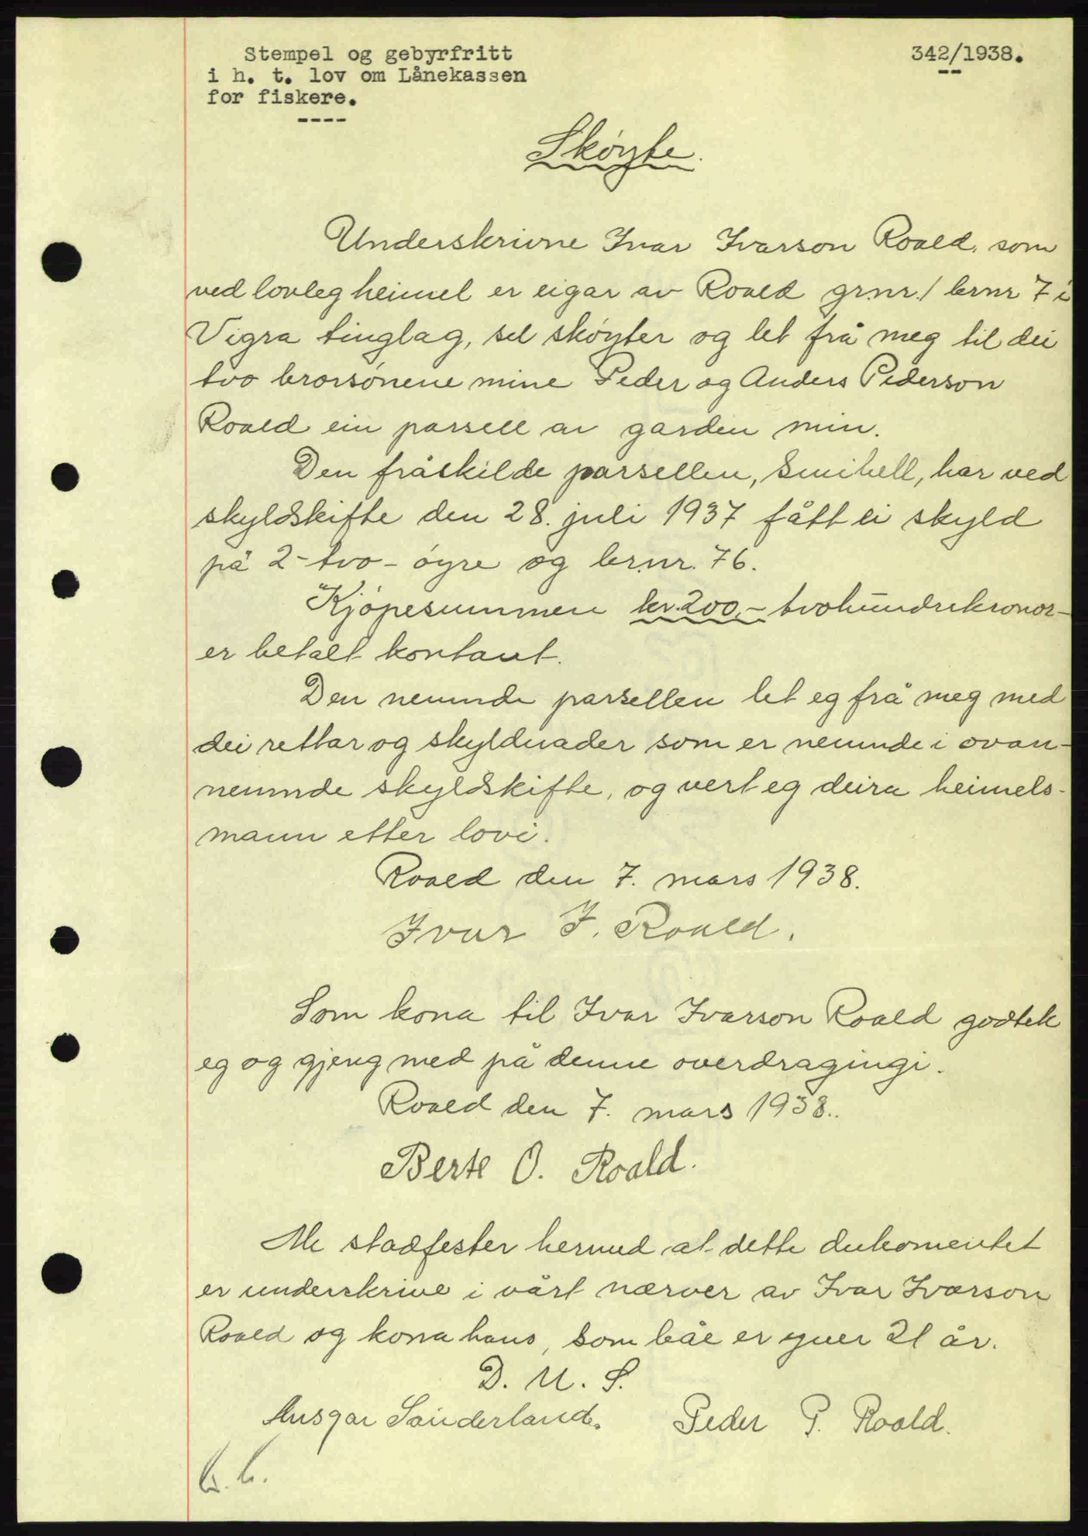 Stempel og gebyrfritt
i h. t. lov om Lånekassen
for fiskere.
342/1938.
Skøyte.
Underskrivne Ivar Ivarson Roald, som
ved lovleg heimel er eigar av Roald grnr. 1 brnr 7 i
Vigra tinglag, sel skøyter og let frå meg til dei
tvo brorsønene mine Peder og Anders Pederson
Roald ein parsell av garden min.
Den fråskilde parsellen, Smihell, har ved
skyldskifte den 28. juli 1937 fått ei skyld
på 2 - tvo - øyre og brnr. 76.
Kjøpesummen kr. 200,- tvohundrekronor -
er betalt kontant.
Den nemnde parsellen let eg frå meg med
dei rettar og skyldnader som er nemnde i ovan-
nemnde skyldskifte, og vert eg deira heimels-
mann etter lovi.
Roald den 7. mars 1938.
Ivar I. Roald.
Som kona til Ivar Ivarson Roald godtek
eg og gjeng med på denne overdragingi.
Roald den 7. mars 1938.
Berte O. Roald.
Me stadfester hermed at dette dukomentet
er underskrive i vårt nærver av Ivar Ivarson
Roald og kona hans, som båe er yver 21 år.
D. U. S.
Ansgar Sunderland. Peder P. Roald.